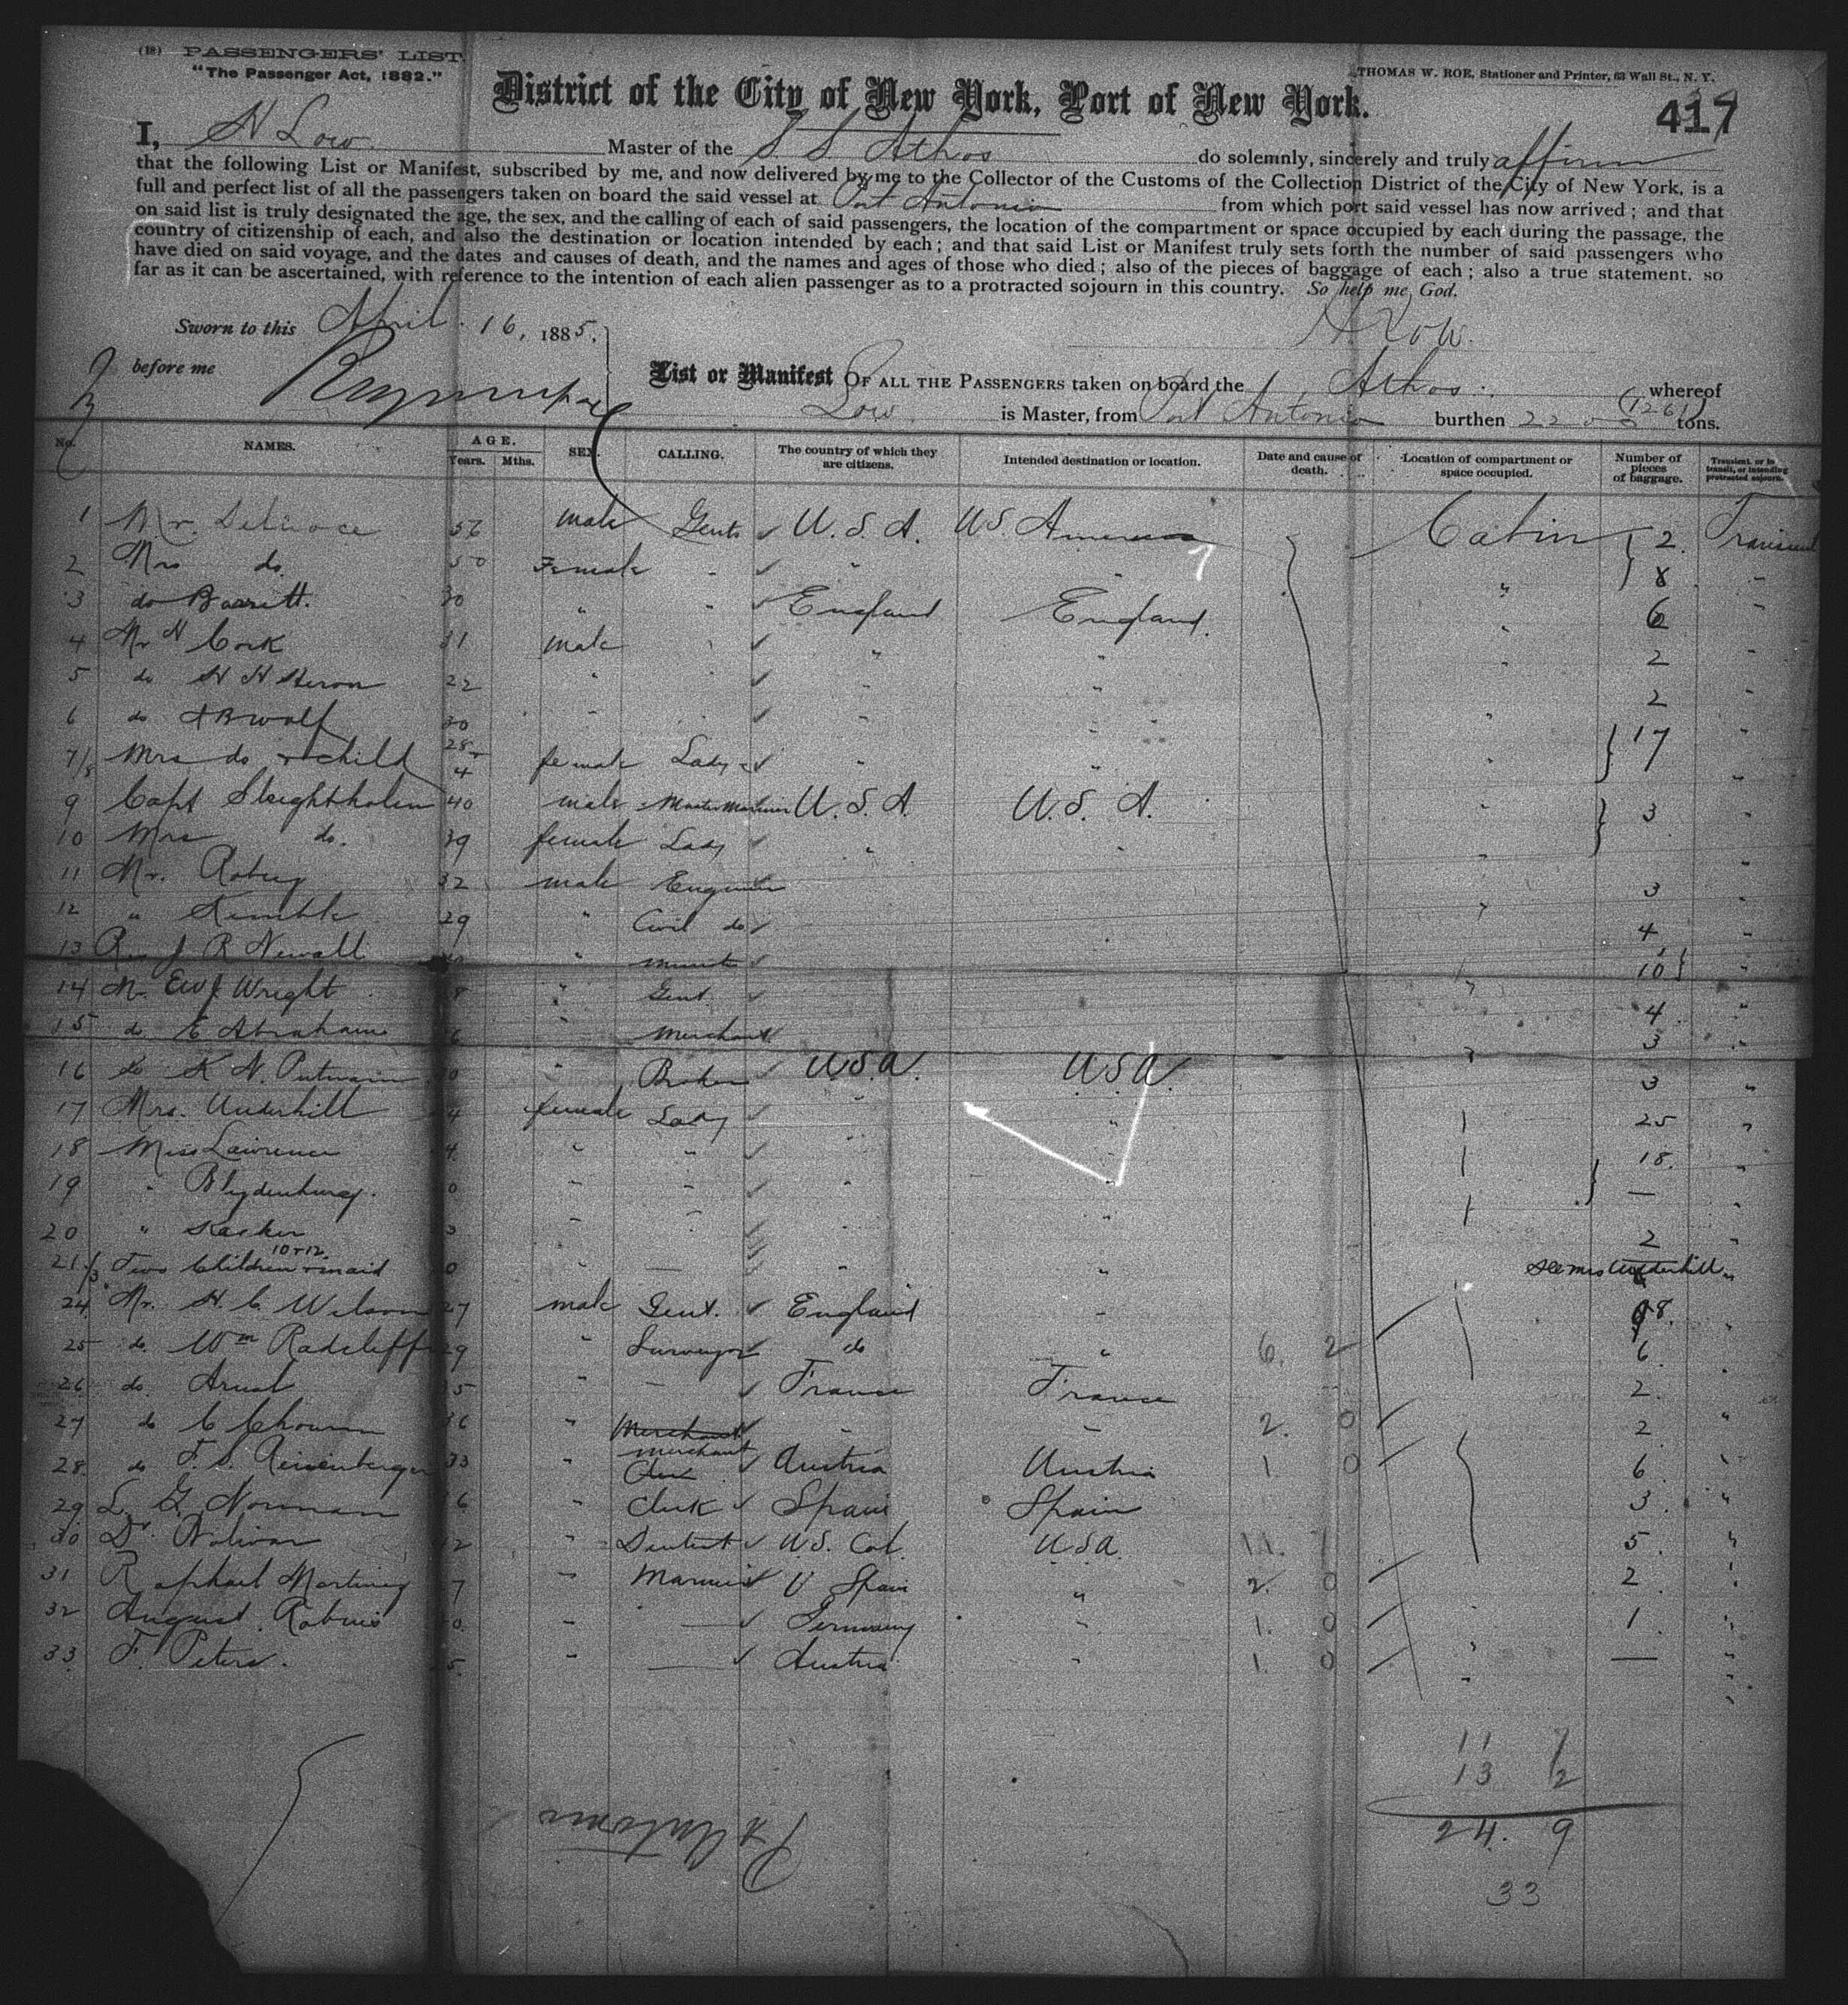 (18) PASSENGERS' LIST.
"The Passenger Act, 1882."
THOMAS W. ROE, Stationer and Printer, 63 Wall St., N. Y.
District of the City of New York, Port of New York.
417
I, N Low Master of the S. S. Athos do solemnly, sincerely and truly affirm
that the following List or Manifest, subscribed by me, and now delivered by me to the Collector of the Customs of the Collection District of the City of New York, is a
full and perfect list of all the passengers taken on board the said vessel at Port Antonio from which port said vessel has now arrived; and that
on said list is truly designated the age, the sex, and the calling of each of said passengers, the location of the compartment or space occupied by each during the passage, the
country of citizenship of each, and also the destination or location intended by each; and that said List or Manifest truly sets forth the number of said passengers who
have died on said voyage, and the dates and causes of death, and the names and ages of those who died; also of the pieces of baggage of each; also a true statement, so
far as it can be ascertained, with reference to the intention of each alien passenger as to a protracted sojourn in this country. So help me God.
Sworn to this April 16, 1885.
Low.
before me
List or Manifest OF ALL THE PASSENGERS taken on board the Athos whereof
Low is Master, from Port Antonio burthen (1261) tons.
No. NAMES. AGE. Years. Mths. SEX. CALLING. The country of which they are citizens. Intended destination or location. Date and cause of death. Location of compartment or space occupied. Number of pieces of baggage. Transient, or in transit, or intending protracted sojourn.
1 Mr. 56 male Gent U. S. A. US America Cabin 2. Transient
2 Mrs do. 50 Female " " " 8 "
3 do Barrett. 30 " " England England. " 6 "
4 Mr H Cork 31 male " " " " 2 "
5 do H H Heron 22 " " " 2 "
6 do A B Wolf 30 " " " " 17 "
7/8 Mrs do + child 28 + 4 female Lady " " " "
9 Capt Sleightholm 40 male Master Mariner U. S. A. U. S. A. " 3 "
10 Mrs do. 39 female Lady " " "
11 Mr. 32 male Engineer 3 "
12 " Kemble 29 " Civil do 4 "
13 Rev J R Newall " 10 "
14 Mr Wright 8 " Gent 4 "
15 do E Abrahams 6 " Merchant 3 "
16 do K N. Putnam 0 " Broker U S A. U S A. 3 "
17 Mrs. Underhill 4 female Lady " " 25 "
18 Miss Lawrence 4 " " " 18. "
19 " Blydenburg. 0 " " " " — "
20 " 3 " " " 2 "
21/3 Two Children 10 + 12 + maid 0 " — " " See Mrs Underhill "
24 Mr. H. C. Wilson 27 male Gent. England " 8. "
25 do. Wm Radcliff 29 " Surveyor do " 6. 2 6. "
26 do. 5 " — France France 2.
27 do C 36 " Merchant " " 2. 0 2 "
28. do F. S. Reisenberger 33 " merchant Clerk Austria Austria 1 0 6 "
29. L. G. Norman 6 " Clerk Spain Spain 3. "
30 Dr. 2 " Dentist U.S. Col. U S A. 11. 1 5. "
31 Raphael 7 " Spain " 2. 0 2 "
32 August 0. " — Germany " 1. 0 1. "
33. F. Peters. 5. " — Austria " 1. 0 — "
11 7
13 2
24. 9
33
Pt Antonio